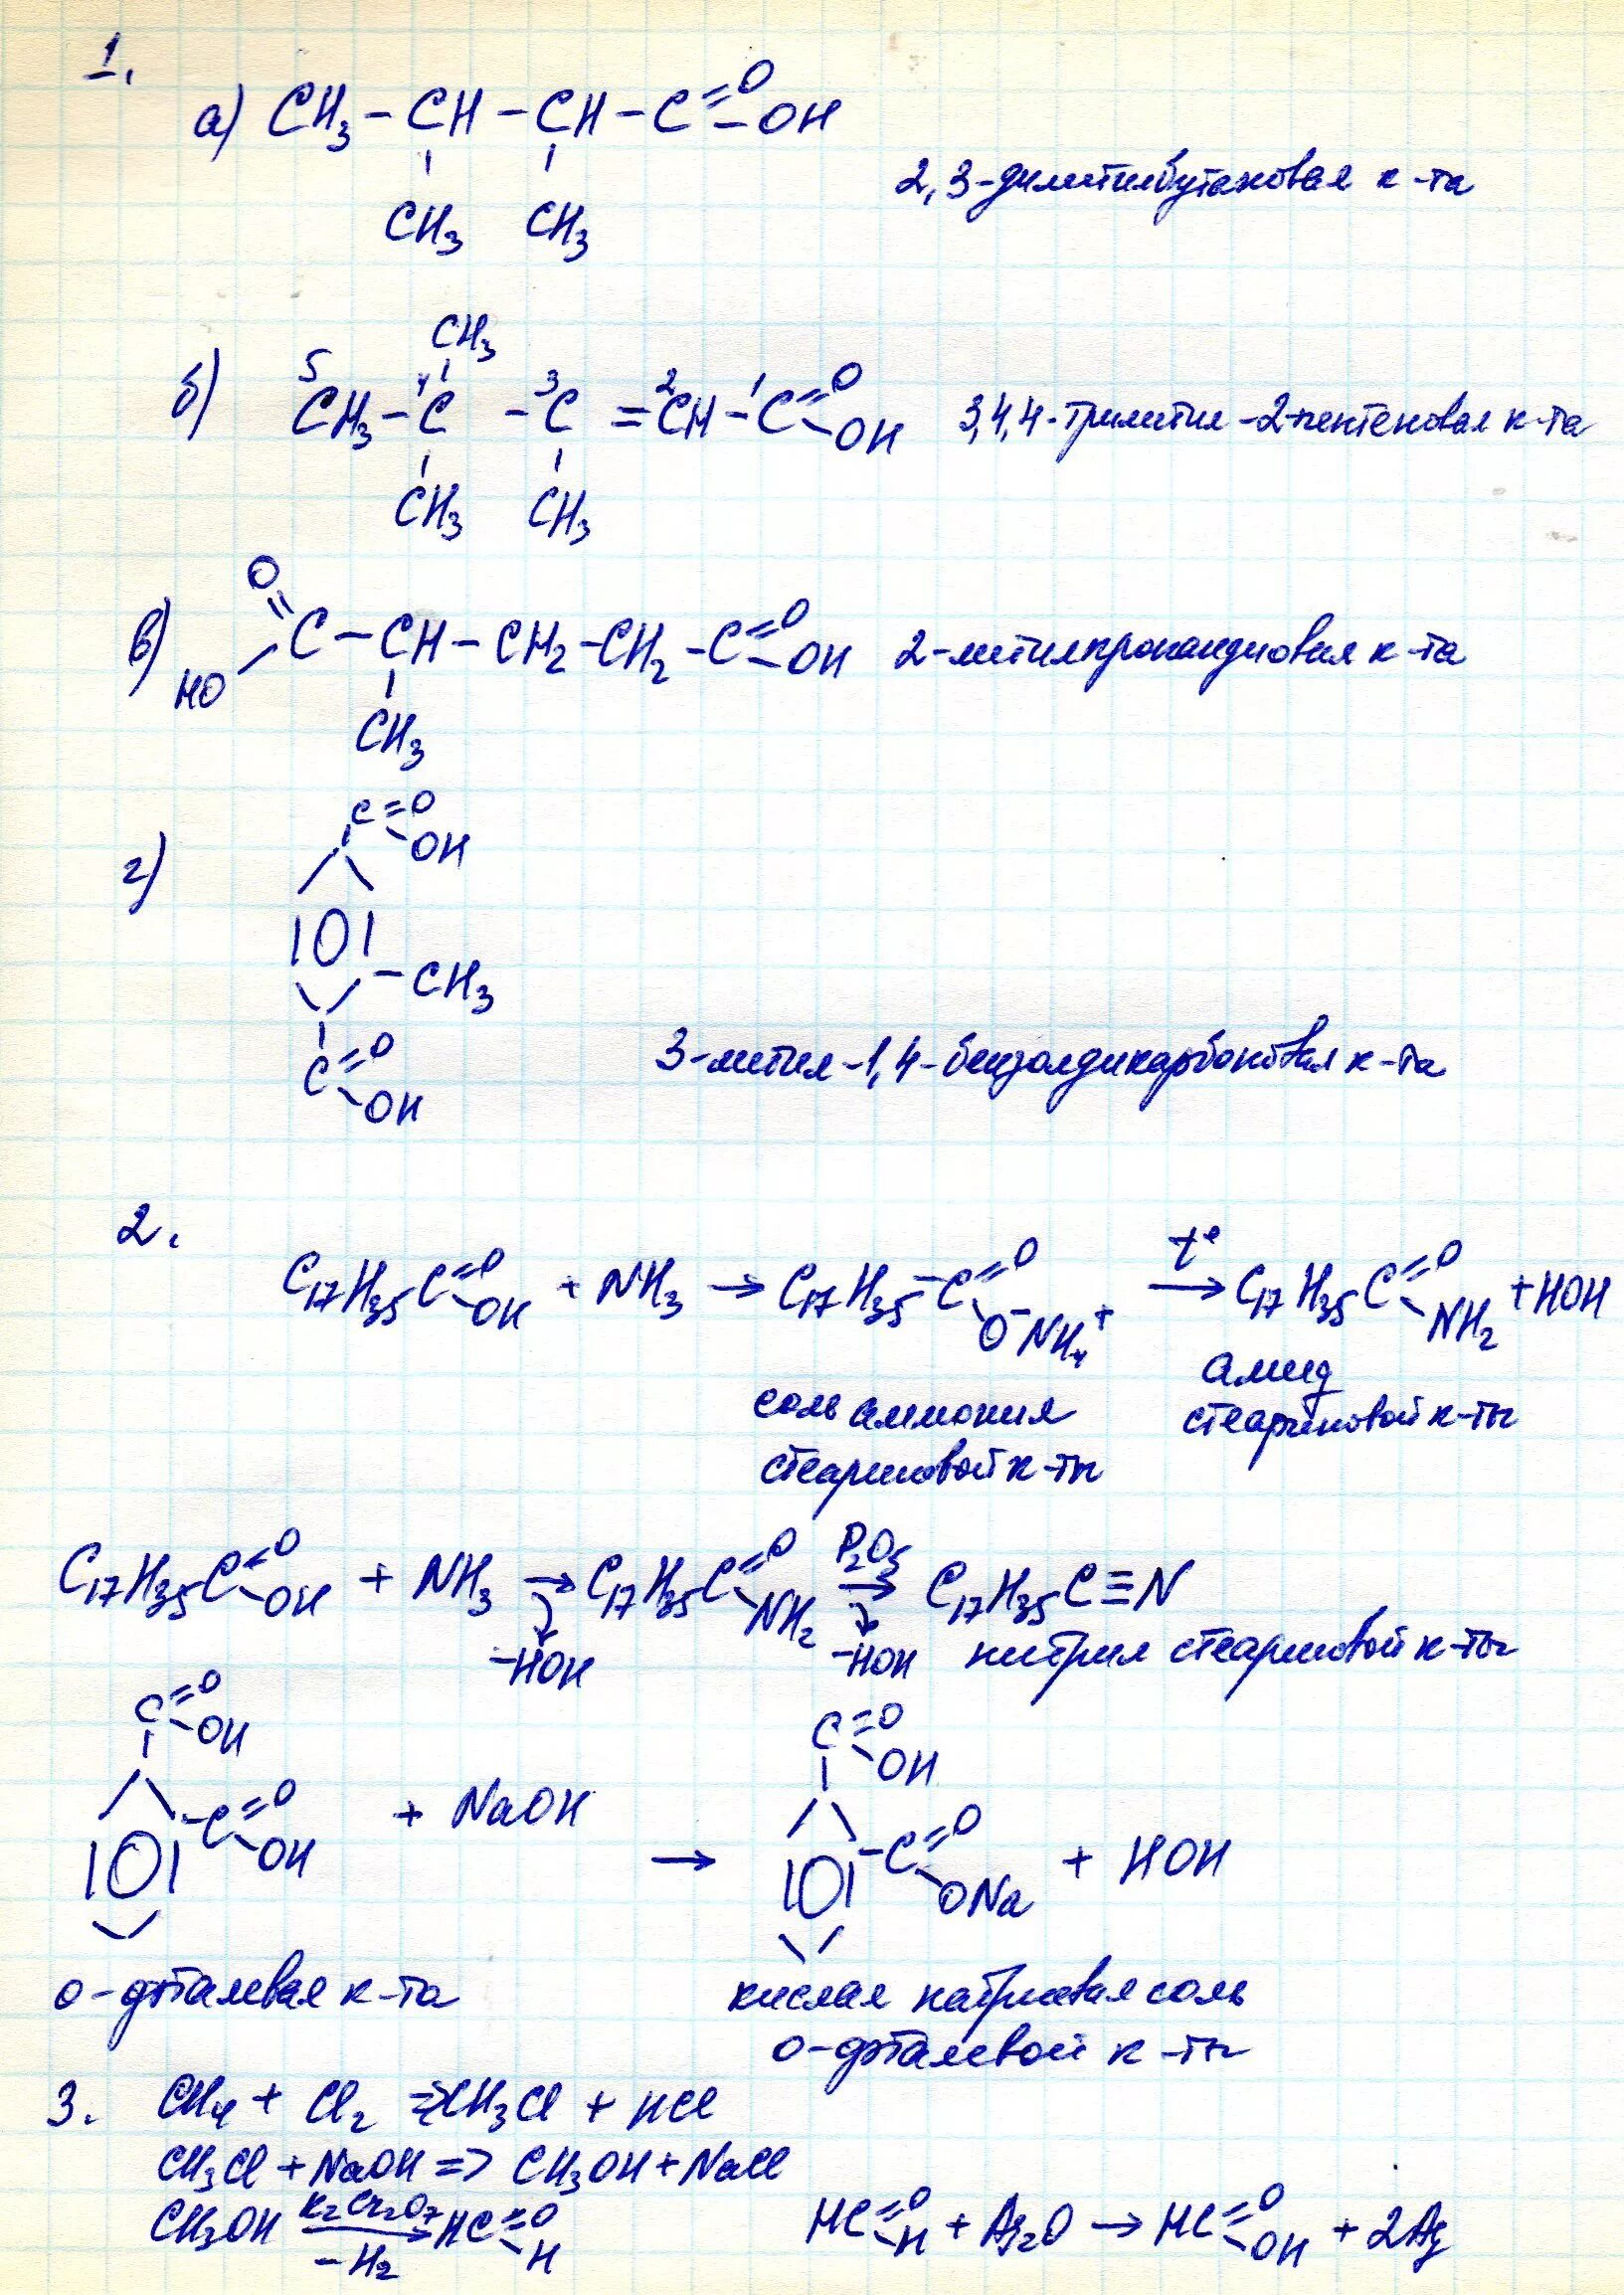 1.
а) CH3 – CH – CH – C =O – OH
CH3 CH3
2,3-диметилбутановая к-та
CH3
б) 5 CH3 – 4 C – 3 C = 2 CH – 1 C =O – OH 3,4,4-триметил-2-пентеновая к-та
CH3 CH3
в) O= HO– C – CH – CH2 – CH2 – C =O – OH 2-метилпропандиовая к-та
CH3
г) C =O – OH
– CH3
C =O – OH
3-метил-1,4-бензолдикарбоновая к-та
2.
C17H35C =O – OH + NH3 → C17H35 – C =O O⁻NH4⁺ t° → C17H35C =O – NH2 + HOH
соль аммония
стеариновой к-ты
амид
стеариновой к-ты
C17H35C =O – OH + NH3 → –HOH C17H35C =O – NH2 P2O5 → –HOH C17H35C≡N
нитрил стеариновой к-ты
C =O – OH
– C =O – OH + NaOH → C =O – OH
– C =O – ONa + HOH
о-фталевая к-та
кислая натриевая соль
о-фталевой к-ты
3. CH4 + Cl2 ⇒ CH3Cl + HCl
CH3Cl + NaOH => CH3OH + NaCl
CH3OH K2Cr2O7 → –H2 HC =O – H
HC =O – H + Ag2O → HC =O – OH + 2Ag